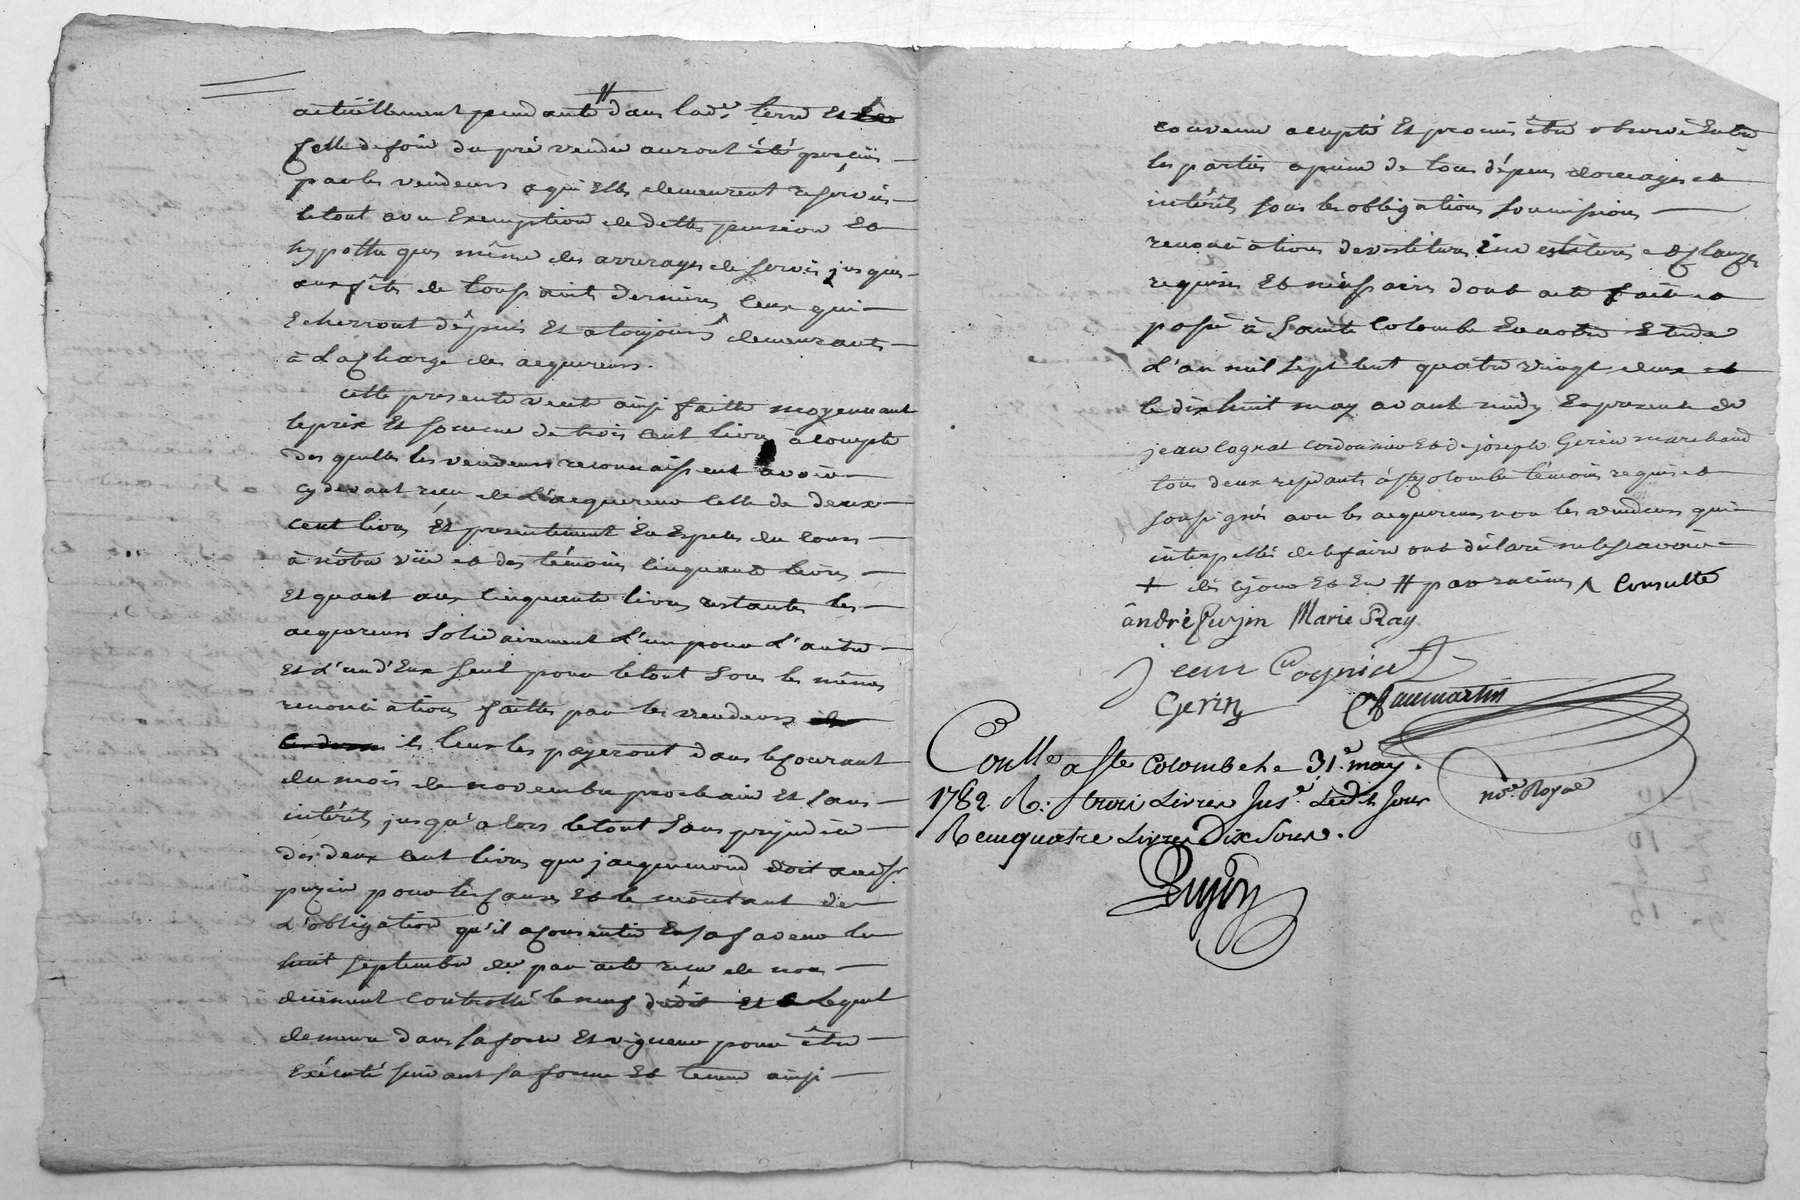 actuëllement pendante # dans lad.e terre et
celle de foin du pré vendu auront été perçües
par les vendeurs a qui elles demeurent reservées
le tout avec exemption de dette pension et
hypotheques même des arrerages de servis jusques
aux fêtes de Toussaints dernieres ceux qui
echerront depuis et a toujours demeurants
à la charge des acquereurs.
cette presente vente ainsi faitte moyennant
le prix et somme de trois cent livres à compte
des quelles les vendeurs reconnaissent avoir
cy devant reçu de l'acquereur celle de deux
cent livres et presentement en especes du cours
à nôtre vüe et des témoins cinquante livres
et quant aux cinquante livres restantes les
acquereurs solidairement l'un pour l'autre
et l'un d'eux seul pour le tout sous les mêmes
renonciations faittes par les vendeurs
ils leur les payeront dans le courant
du mois de novembre prochain et sans
intérêts jusqu'alors le tout sans prejudice
des deux cent livres que jacquemond doit audit
puzin pour les causes et le montant de
l'obligation qu'il a consentie en sa faveur le
huit septembre der par acte reçu de nous
düement controllé le neuf dudit et lequel
demeure dans sa force et vigueur pour être
exécuté suivant sa forme et teneur ainsi
convenu accepté et promis être observé entre
les parties a peine de tous dépens domages et
intérêts sous les obligations soumissions
renonciations devestiture investiture et clauses
requises et nécessaires dont acte fait et
passé à Sainte Colombe en notre etude
l'an mil sept cent quatre vingt deux et
le dix huit may avant midy en presence de
jean Cognat cordonnier et de joseph Gerin marchand
tous deux residants à Ste Colombe témoins requis et
soussignés avec les acquereurs non les vendeurs qui
interpellés de le faire ont déclaré ne le savoir
+ dès ce jour et en # par racines ^ consulte
andré Puzin Marie Ray
jean Cognat
Gerin Chaumartin
no.re Royal
Conllé a Ste Colombe le 31.e may.
1782. R: trois Livres
Reçu quatre Livres Dix Sous.